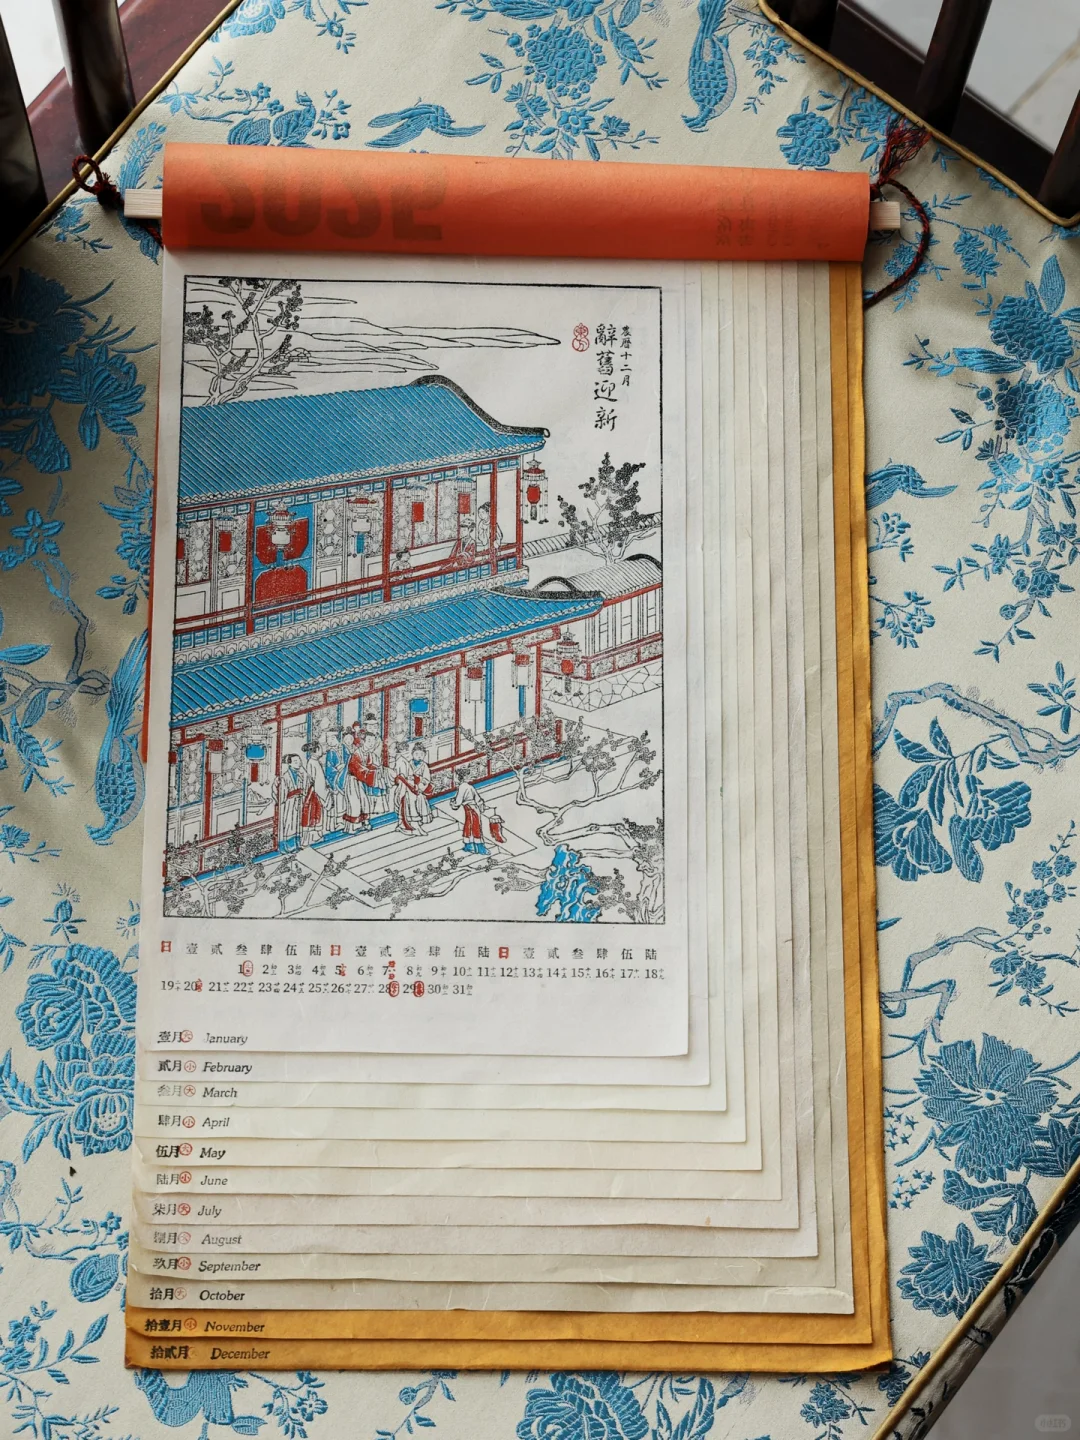 農曆十二月
辭舊迎新
日 壹 貳 叁 肆 伍 陆 日 壹 貳 叁 肆 伍 陆 日 壹 貳 叁 肆 伍 陆
1 2 3 4 5 6 7 8 9 10 11 12 13 14 15 16 17 18
19 20 21 22 23 24 25 26 27 28 29 30 31
壹月 大 January
貳月 小 February
叁月 大 March
肆月 小 April
伍月 大 May
陆月 小 June
柒月 大 July
捌月 大 August
玖月 小 September
拾月 大 October
拾壹月 小 November
拾貳月 December